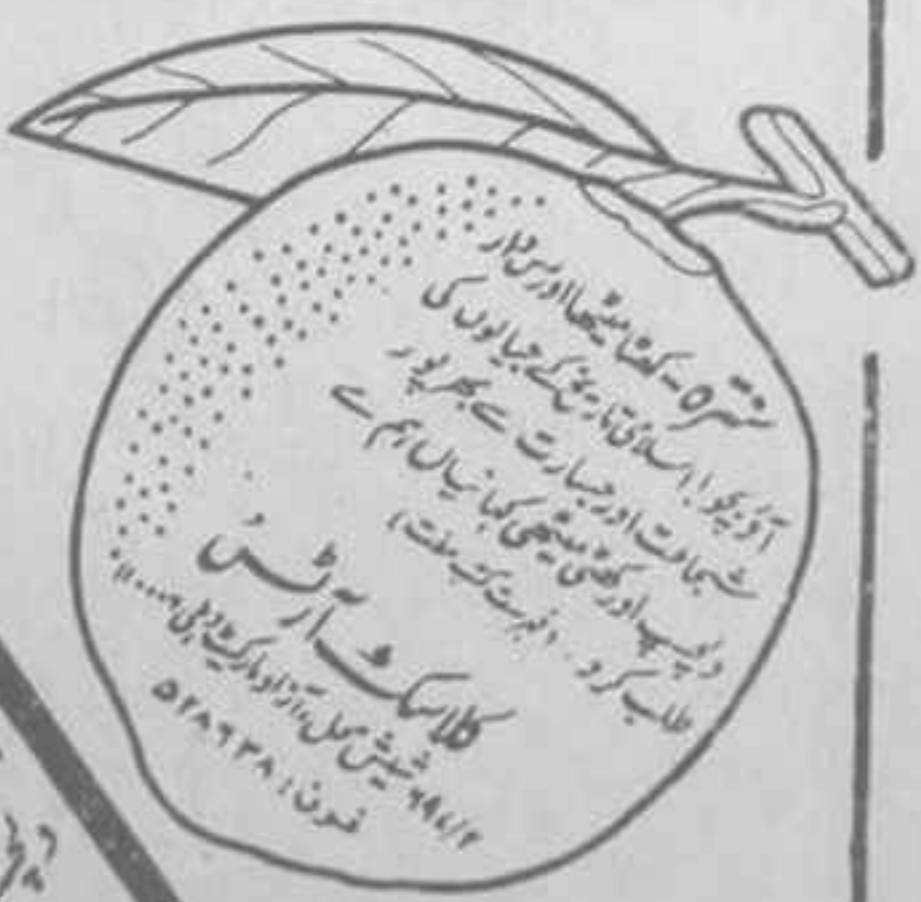 سنترہ - کھٹا میٹھا اور رس دار
آؤ بچو! اسلامی تاریخ کے جیالوں کی
شجاعت اور جسارت سے بھرپور
دلچسپ اور کھٹی میٹھی کہانیاں ہم سے
طلب کرو - (فہرست کتب مفت)
کلاسک آرٹس
۶۹۸/۲ شیش محل، آزاد مارکیٹ دہلی ۱۱۰۰۰۶
فون : ۵۲۸۶۳۸